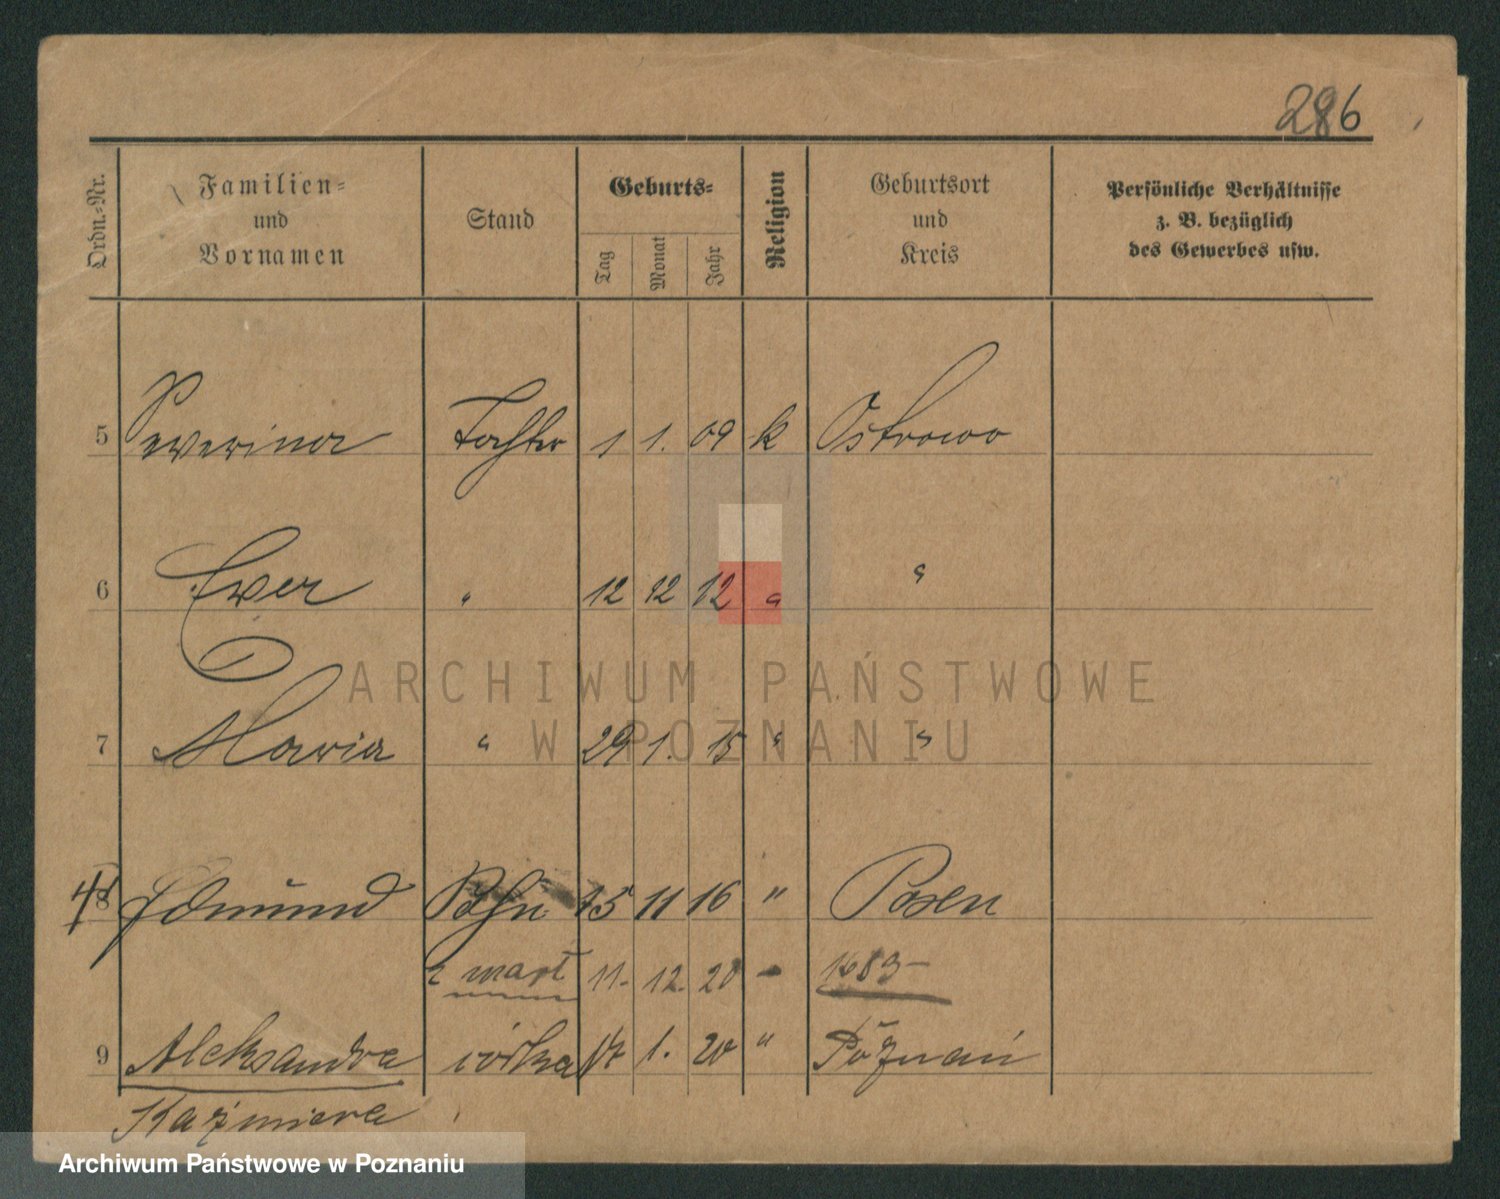 286
Ordn.-Nr.
Familien-
und
Vornamen
Stand
Geburts-
Tag
Monat
Jahr
Religion
Geburtsort
und
Kreis
Persönliche Verhältnisse
z. B. bezüglich
des Gewerbes usw.
5 Severina Tochter 1 1. 09 k Ostrowo
6 Ewa " 12 12 12 " "
ARCHIWUM PAŃSTWOWE
W POZNANIU
7 Maria " 29 1. 15 " "
8 Edmund Sohn 15 11 16 " Posen
mart 11. 12. 20 1683
9 Aleksandra córka 1. 20 " Poznań
Kazimiera
Archiwum Państwowe w Poznaniu